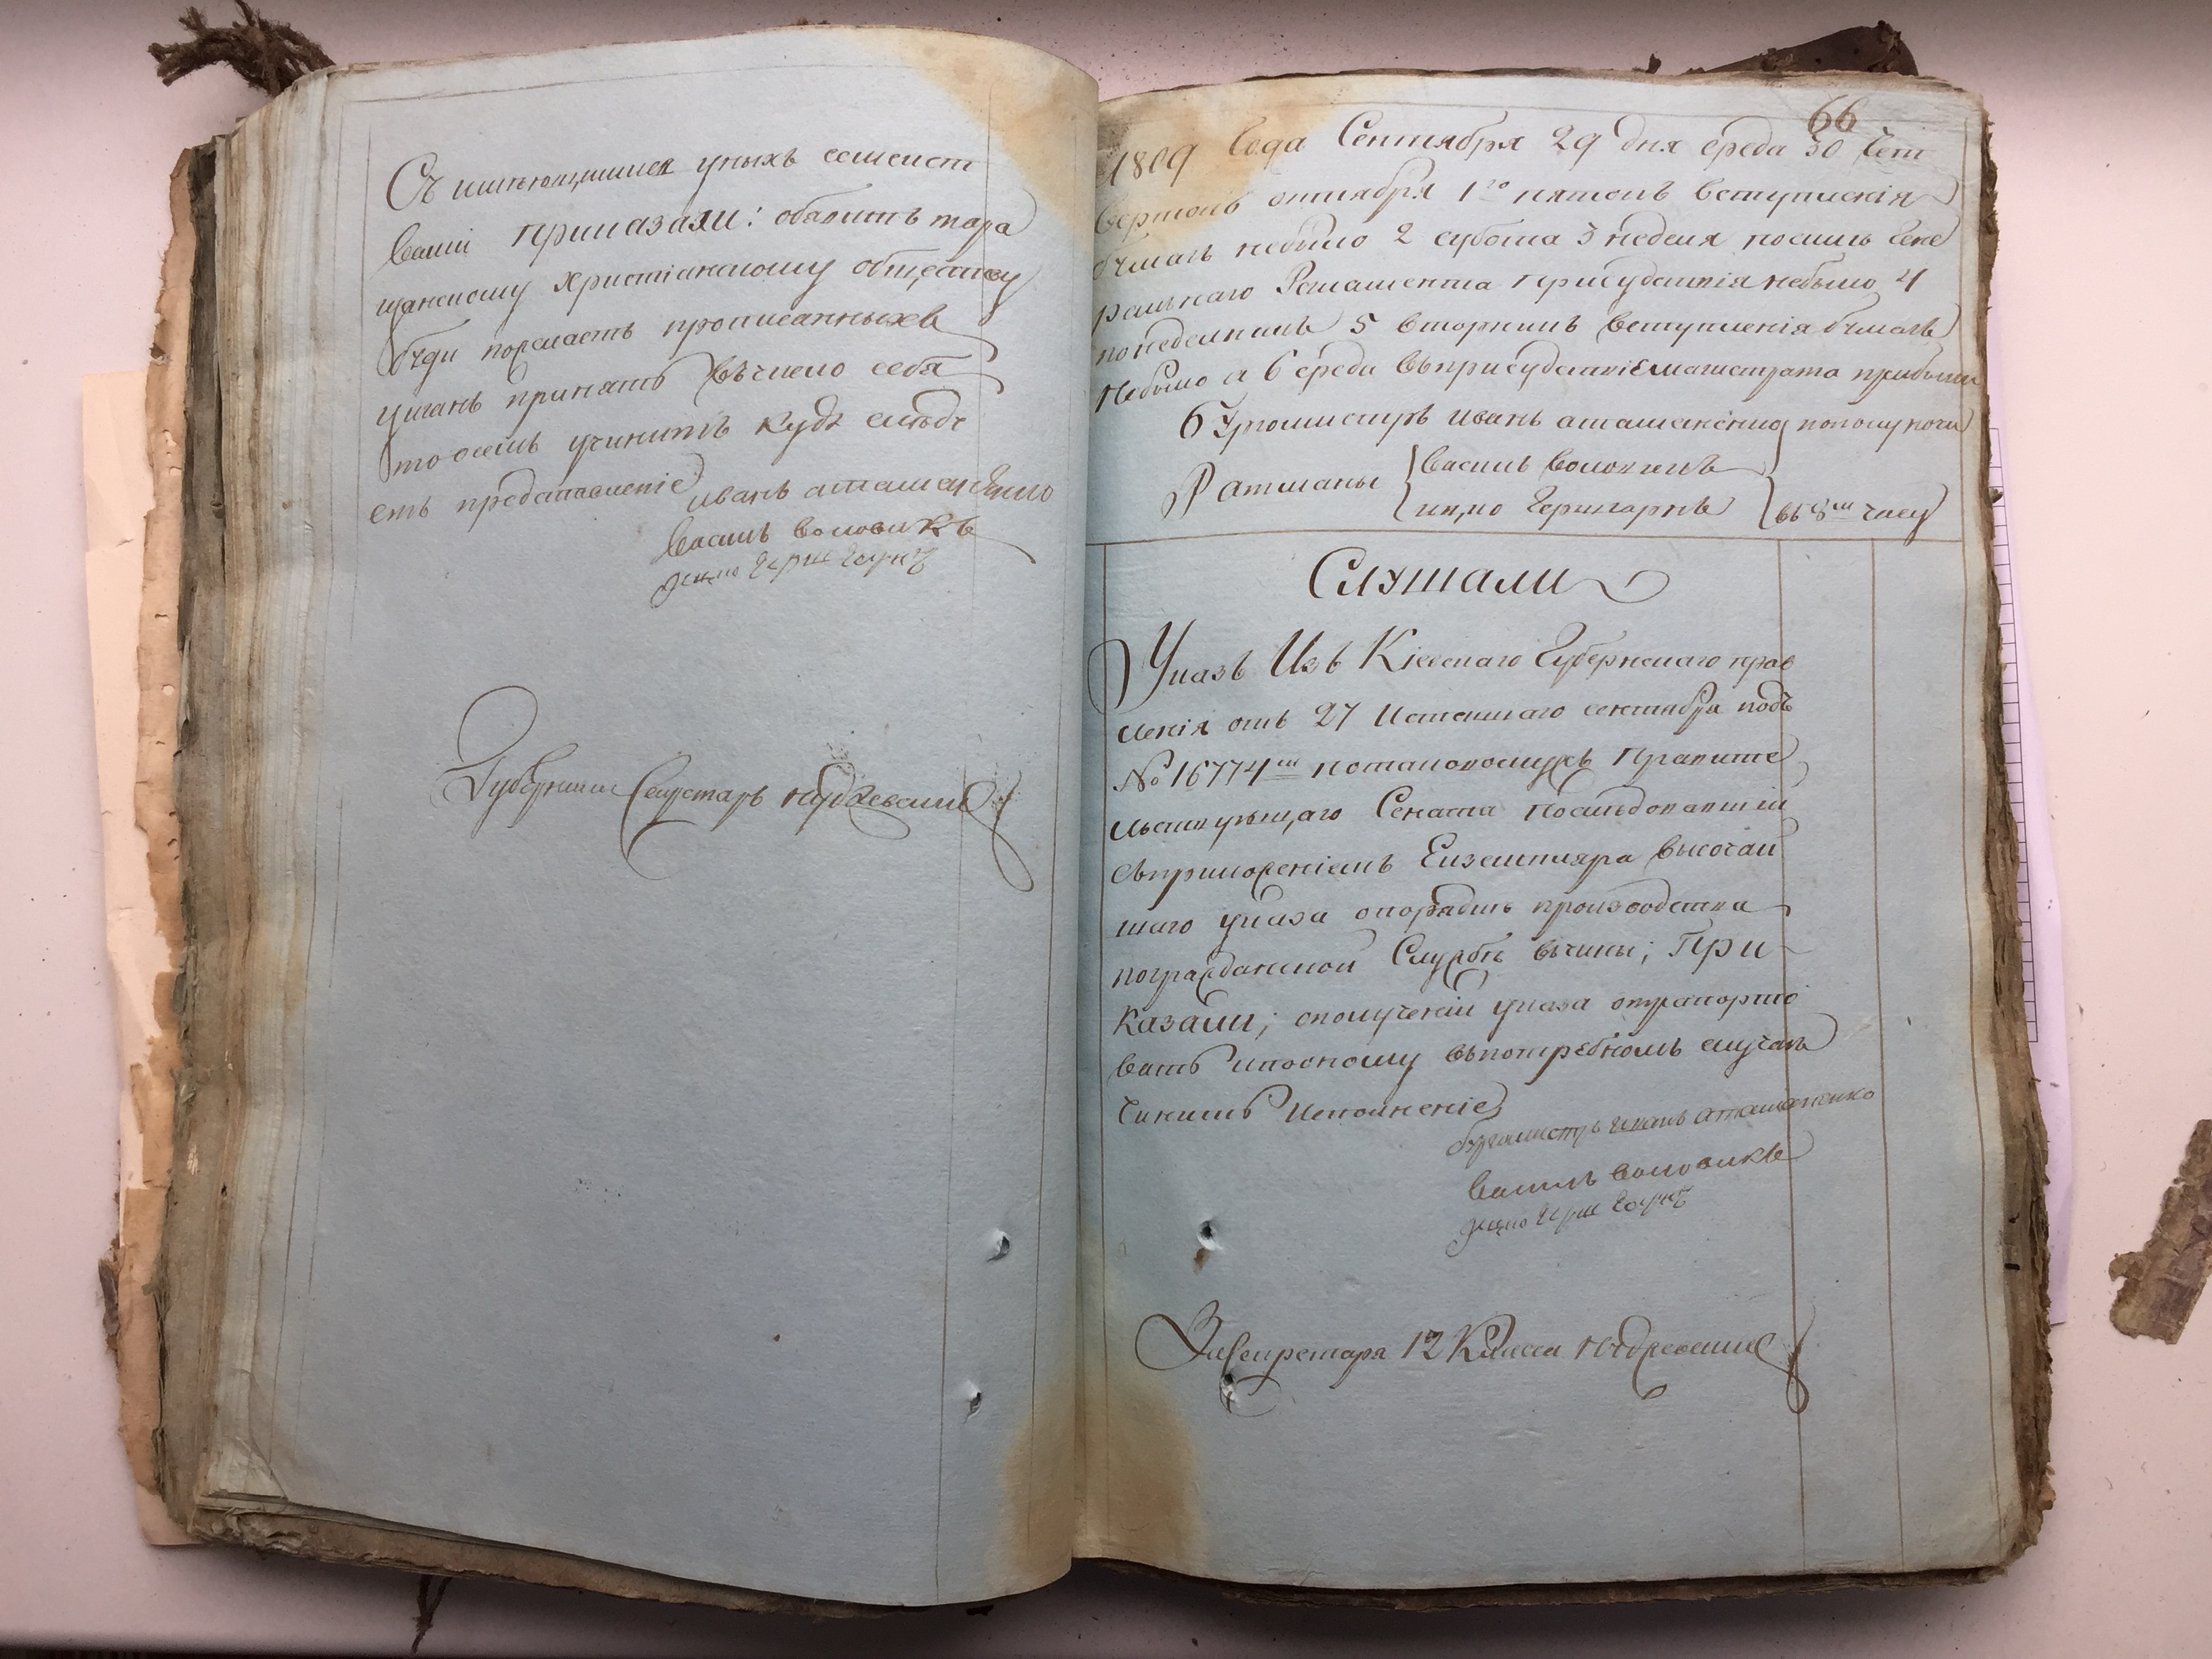 Съ имѣющимися уныхъ семейст
вами приказали: обявить тара
щанскому христіанскому обществу
буди пожелаетъ прописанныхъ
цыганъ принять въ число себя
то осемъ учинить куда слѣдѵ
етъ представленіе
иванъ аташенєнко
василь воловикъ
ицко герш
Губернски Секретарь
66
1809 Года Сентября 29 дня среда 30 Чет
вертокъ октября 1го пятокъ вступленія
бумагъ небыло 2 субота 3 неделя посилѣ Гене
ральнаго Регламента присудствія небыло 4
понеделникъ 5 вторникъ вступленія бумагъ
небыло а 6 среда въприсудствіе магистрата прибыли
Бургомистръ иванъ аташенєнко пополуночи
Ратманы
василь воловикъ
ицко
въ 8мъ часу
Слушали
Указъ Изъ Кіевскаго Губернскаго прав
ленія отъ 27 Истекшаго сентября подъ
№ 16774мъ потаковомужъ Правите
льствующаго Сената Послѣдовавшій
Съприложеніемъ Екземпляра высочай
шаго указа опорядкѣ производства
погражданской Службѣ въчины; При
казали; ополученіи указа отрапорто
вать ипооному въпотребномъ случаѣ
Чинить Исполненіе
бургомистръ иванъ аташаненко
василь воловикъ
ицко герш
За Секретаря 12 Класса